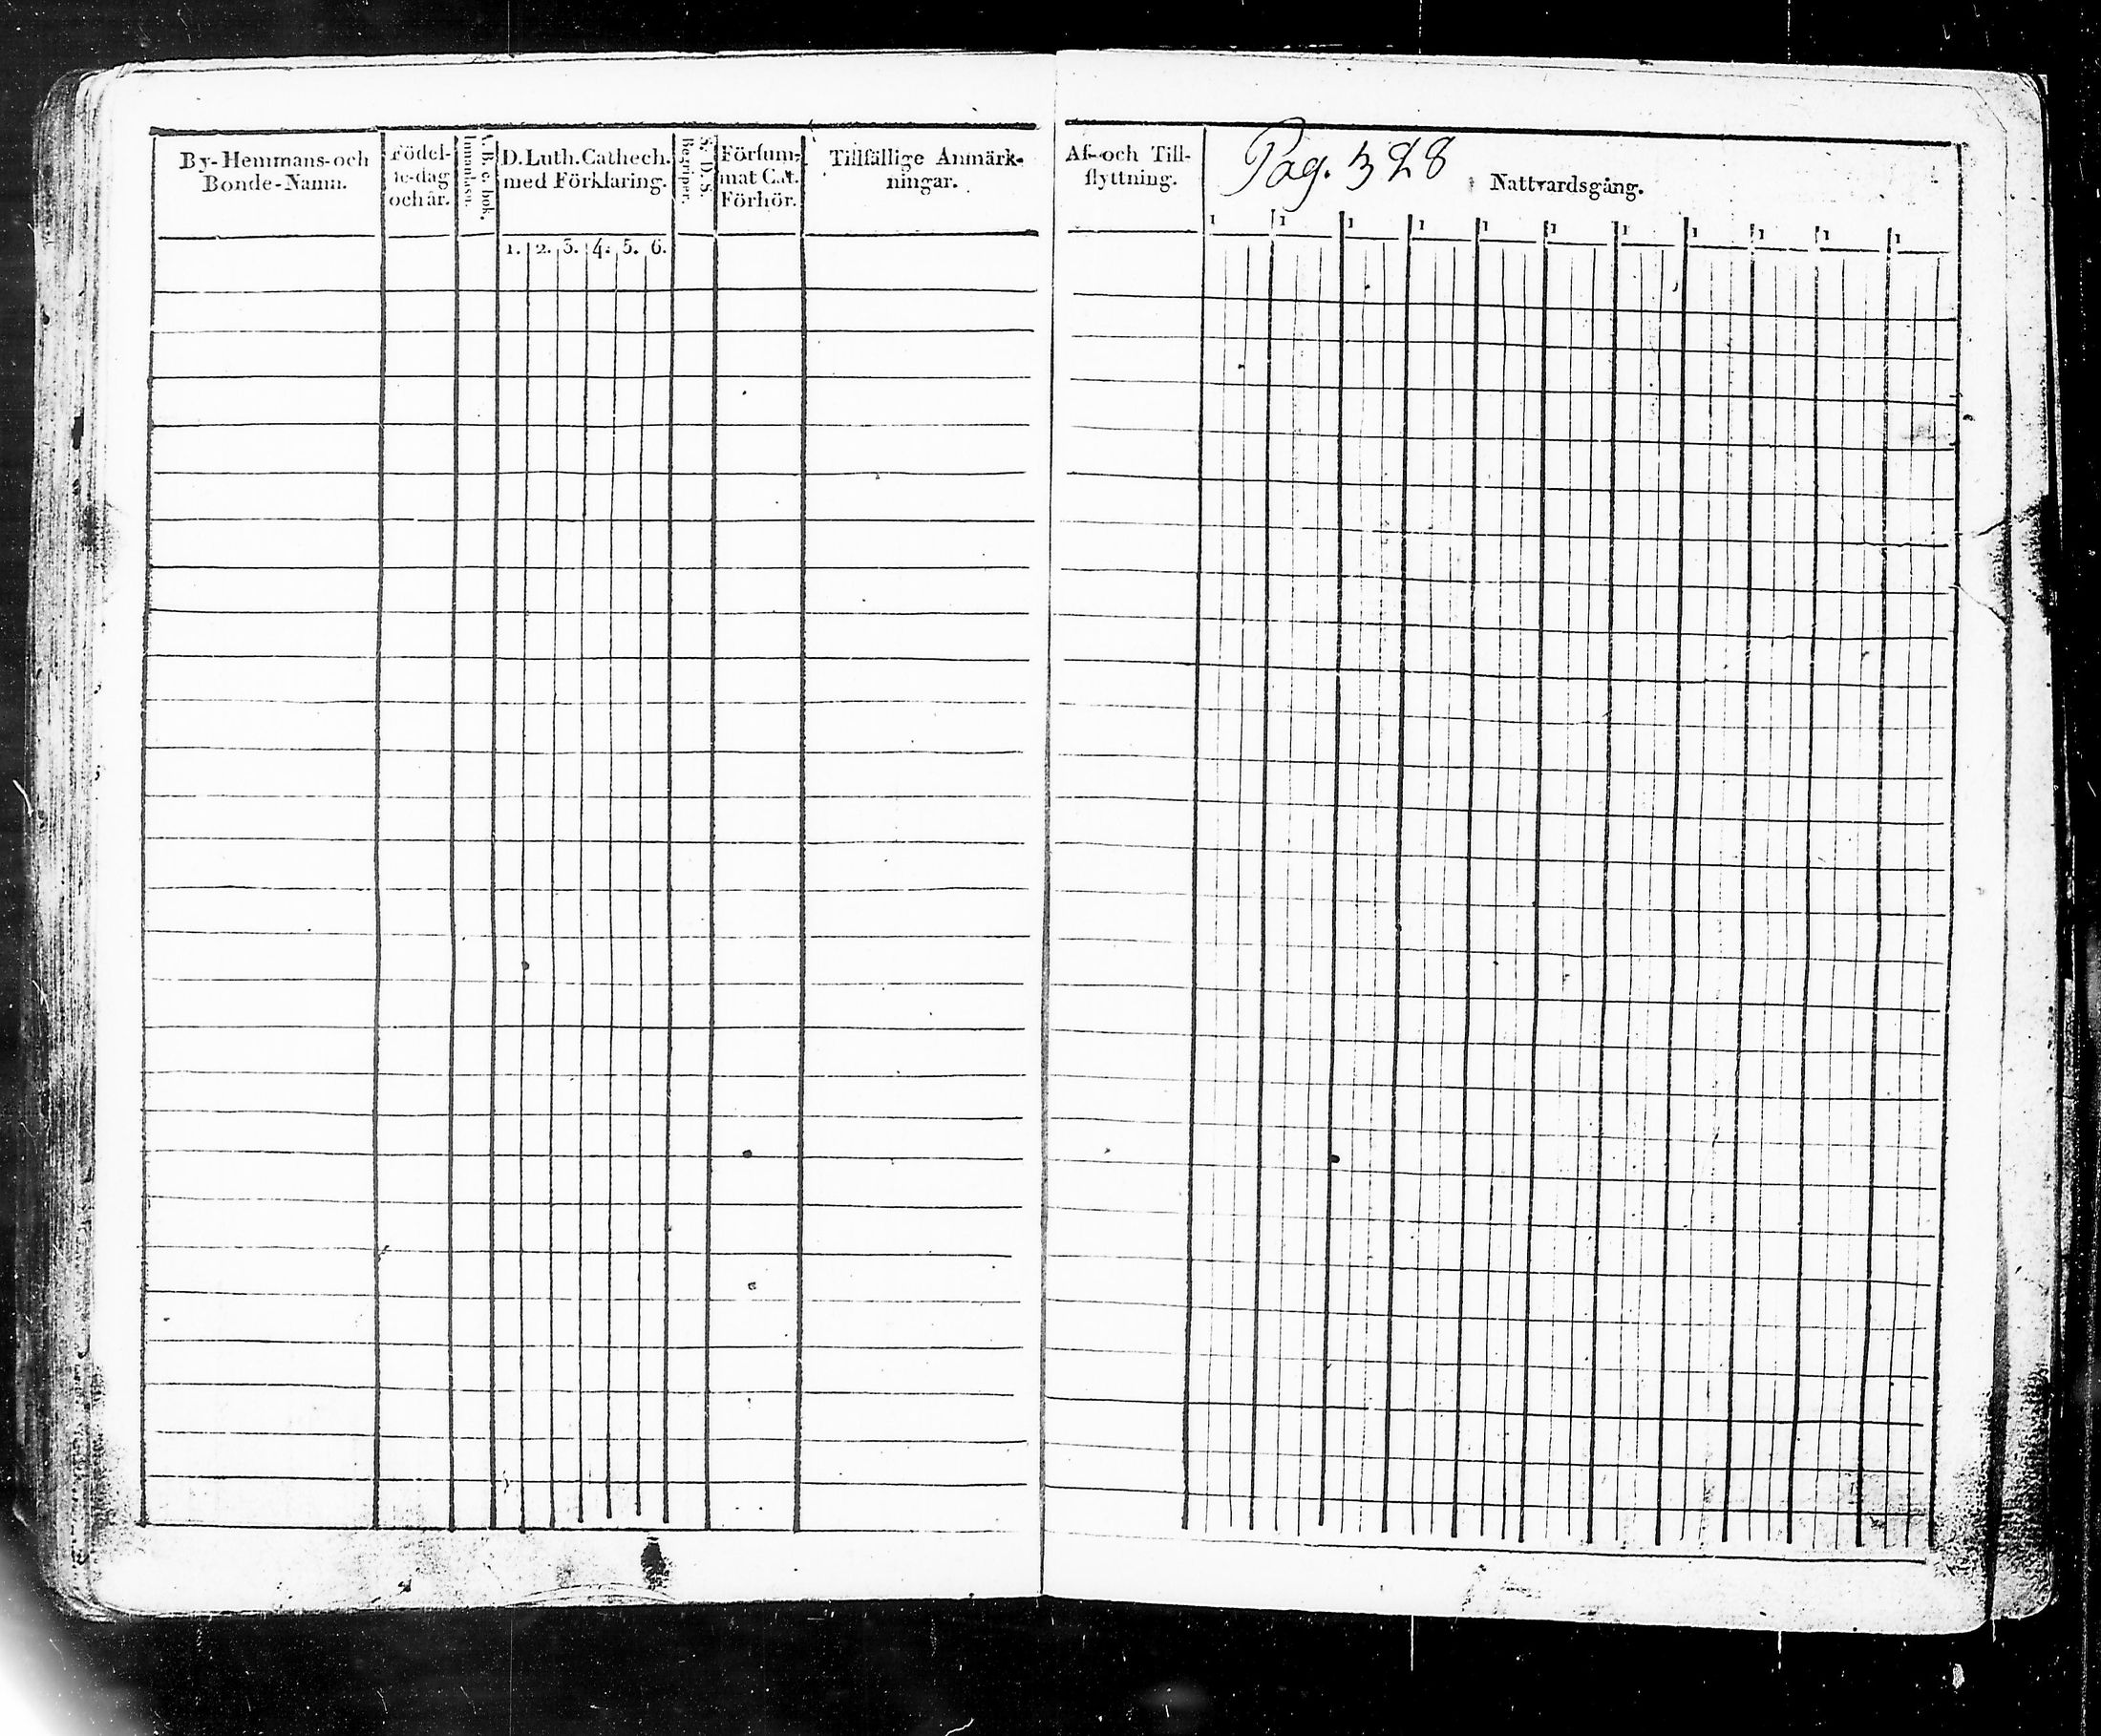 By-Hemmans-och
Bonde-Namn.
Födel-
se-dag
och år.
A. B. c. bok.
Innanläsn.
D. Luth. Cathech.
med Förklaring.
1. 2. 3. 4. 5. 6.
Begriper.
S. D. S.
Försum-
mat Cat.
Förhör.
Tillfällige Anmärk-
ningar.
Af- och Till-
flyttning.
Pag. 328
Nattvardsgång.
1 1 1 1 1 1 1 1 1 1 1